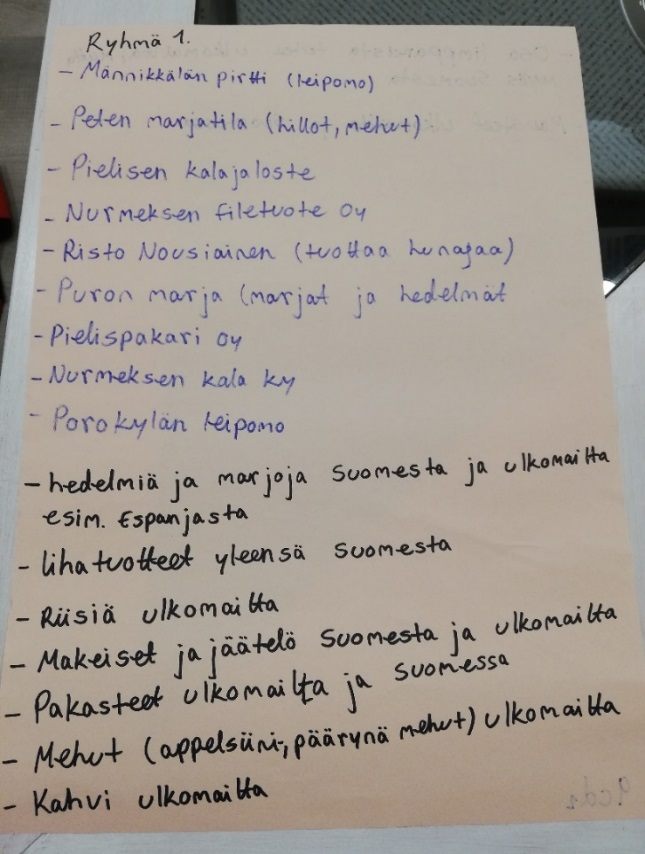 Ryhmä 1.
- Männikkälän pirtti (leipomo)
- Peten marjatila (hillot, mehut)
- Pielisen kalajaloste
- Nurmeksen filetuote Oy
- Risto Nousiainen (tuottaa hunajaa)
- Puron marja (marjat ja hedelmät
- Pielispakari Oy
- Nurmeksen kala ky
- Porokylän leipomo
- hedelmiä ja marjoja Suomesta ja ulkomailta
esim. Espanjasta
- lihatuotteet yleensä Suomesta
- Riisiä ulkomailta
- Makeiset ja jäätelö Suomesta ja ulkomailta
- Pakasteet ulkomailta ja suomessa
- Mehut (appelsiini-, päärynä mehut) ulkomailta
- Kahvi ulkomailta